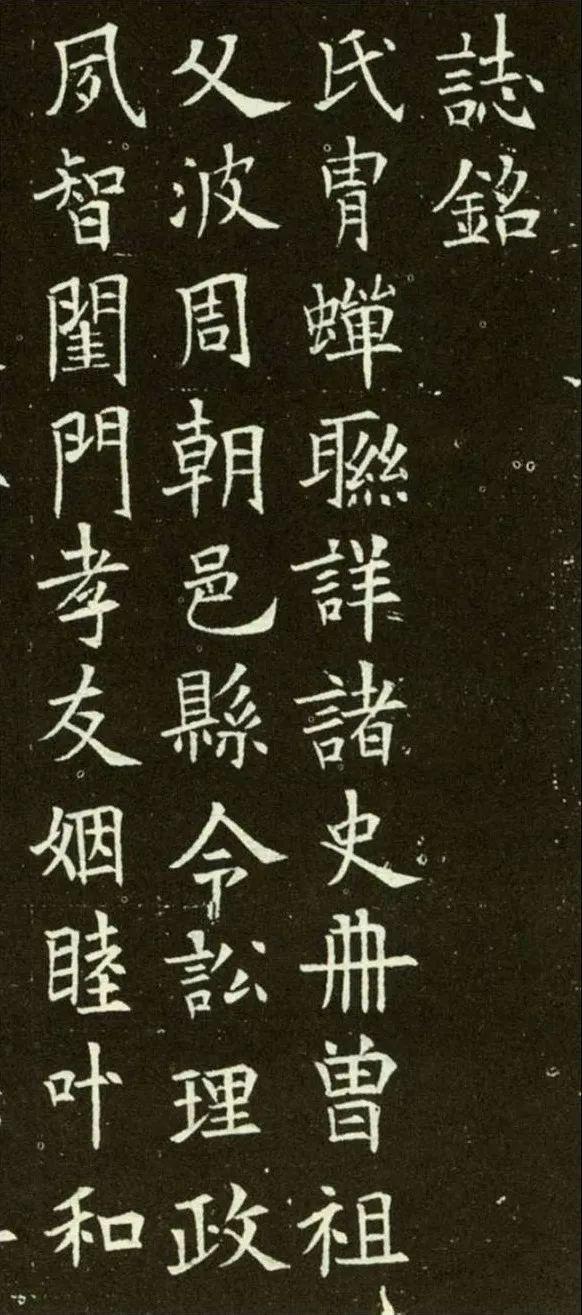 誌銘
氏胄蟬聯詳諸史冊曾祖
父波周朝邑縣令訟理政
夙智閨門孝友姻睦叶和